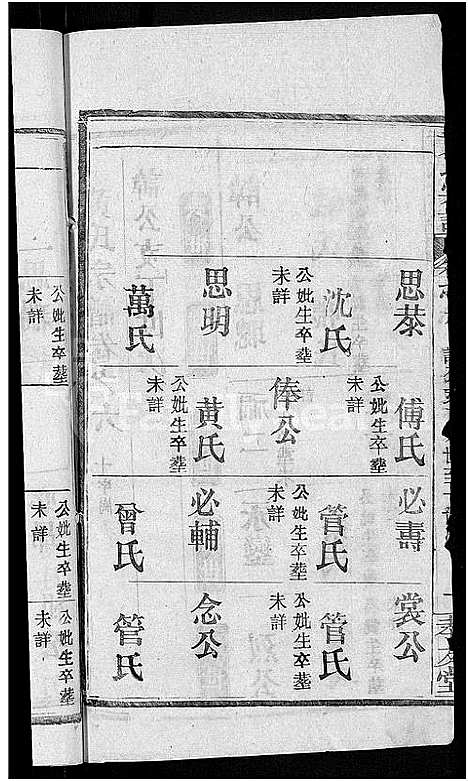 思恭
沈氏
公妣生卒塟
未詳
思明
萬氏
傅氏
公妣生卒塟
未詳
俸公
黃氏
公妣生卒塟
未詳
必壽
管氏
公妣生卒塟
未詳
必輔
曾氏
裳公
管氏
公妣生卒塟
未詳
念公
管氏
公妣生卒塟
未詳
公妣生卒塟
未詳
公妣生卒塟
未詳